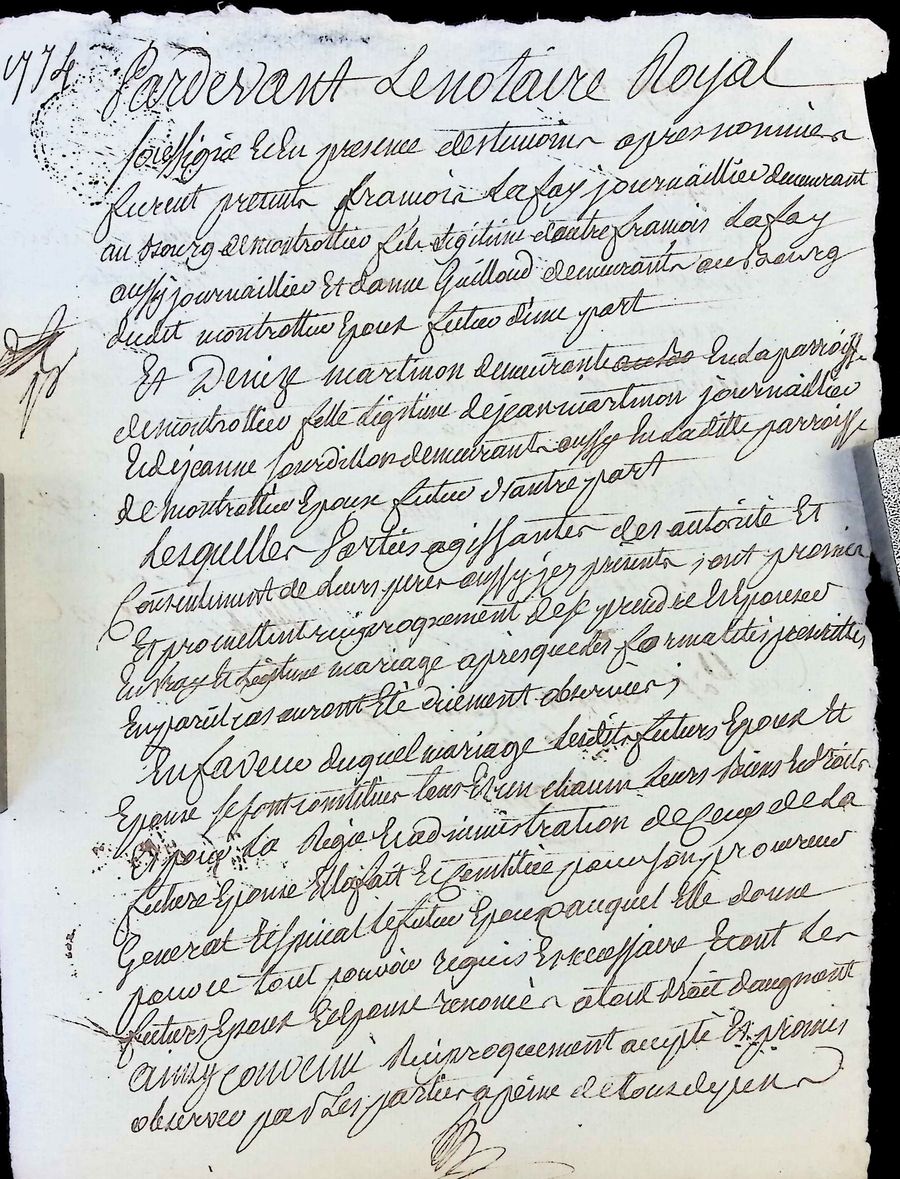 1774
Pardevant Le notaire Royal
soussigné Et En presence des temoins apres nommés
furent presents francois Lafay journaillier demeurant
au Bourg de montrottier fils Legitime d'autre francois Lafay
aussy journaillier Et d'anne Guilloud demeurants au Bourg
dudit montrottier Epoux futur d'une part
Et Denize martinon demeurante En La parroisse
de montrottier fille Legitime de jean martinon journaillier
Et de jeanne Jourdillon demeurants aussy En La ditte parroisse
de montrottier Epouse future d'autre part
Lesquelles Parties agissantes des autorité Et
Consentement de Leurs peres aussy jcy presents ont promis
Et promettent reciproquement de se prendre Et Epouser
En vray Et Legitime mariage apres que les formalités prescrittes
En pareil cas auront Eté duement observées
En faveur duquel mariage Lesdits futurs Epoux Et
Epouse se font constitués tous Et un chacun Leurs Biens Et droits
Et pour La Regie Et administration de Ceux de La
future Epouse Elle a fait Et Constitué pour son procureur
General Et special Le futur Epoux auquel Elle donne
pouvoir tout pouvoir requis Et necessaire Et ont Les
futurs Epoux Et Epouse renoncés a tout droit d'augment
ainsy convenu Reciproquement accepté Et promis
observer par Les parties a peine de tous depens